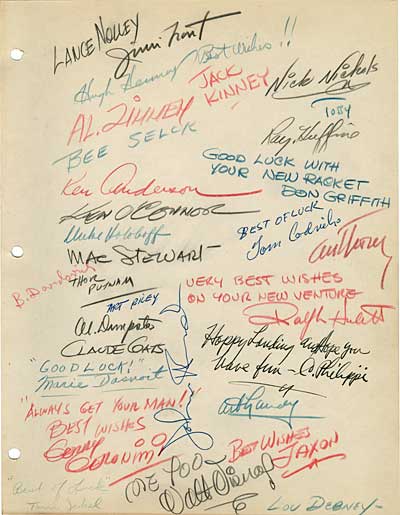 LANCE NOLLEY
Jimi Trout
Best Wishes!!
Hugh Hennesy
JACK
KINNEY
Nick Nichols
TOBY
AL ZINNEN
BEE SELCK
Ray Huffine
GOOD LUCK WITH
YOUR NEW RACKET
DON GRIFFITH
Ken Anderson
KEN O'CONNOR
BEST OF LUCK
Tom Codrick
Mike Holoboff
MAC STEWART
THOR
PUTNAM
VERY BEST WISHES
ON YOUR NEW VENTURE
Ralph Hulett
ART RILEY
Al Dempster
CLAUDE COATS
Happy Landing and Hope you
have fun - C. Philippi
"GOOD LUCK!"
"ALWAYS GET YOUR MAN!!"
BEST WISHES
Gerry
Geronimi
Art Landy
BEST WISHES
JAXON
ME TOO
Walt Disney
"Best of Luck"
LOU DEBNEY-